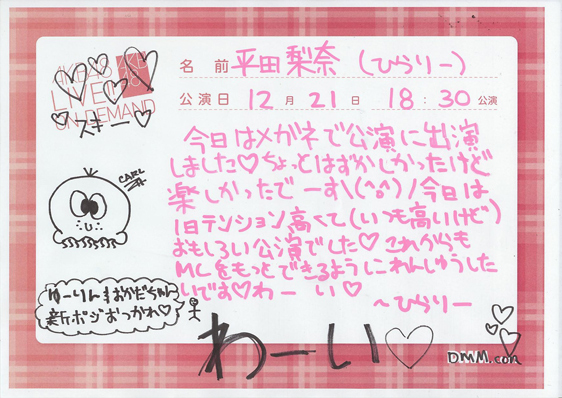 AKB48
LIVE!!
ON DEMAND
スキー♡
名 前 平田梨奈 (ひらりー)
公演日 12 月 21 日 18 : 30 公演
今日はメガネで公演に出演
しました♡ちょっとはずかしかったけど
楽しかったでーす\(^o^)/今日は
1日テンション高くて(いつも高いけど)
おもしろい公演でした♡これからも
MCをもっとできるようにれんしゅうした
いです♡わーい♡
～ひらりー
CARL
ゆーりん&おかだちゃん
新ポジおつかれ♡
わーい♡
DMM.com